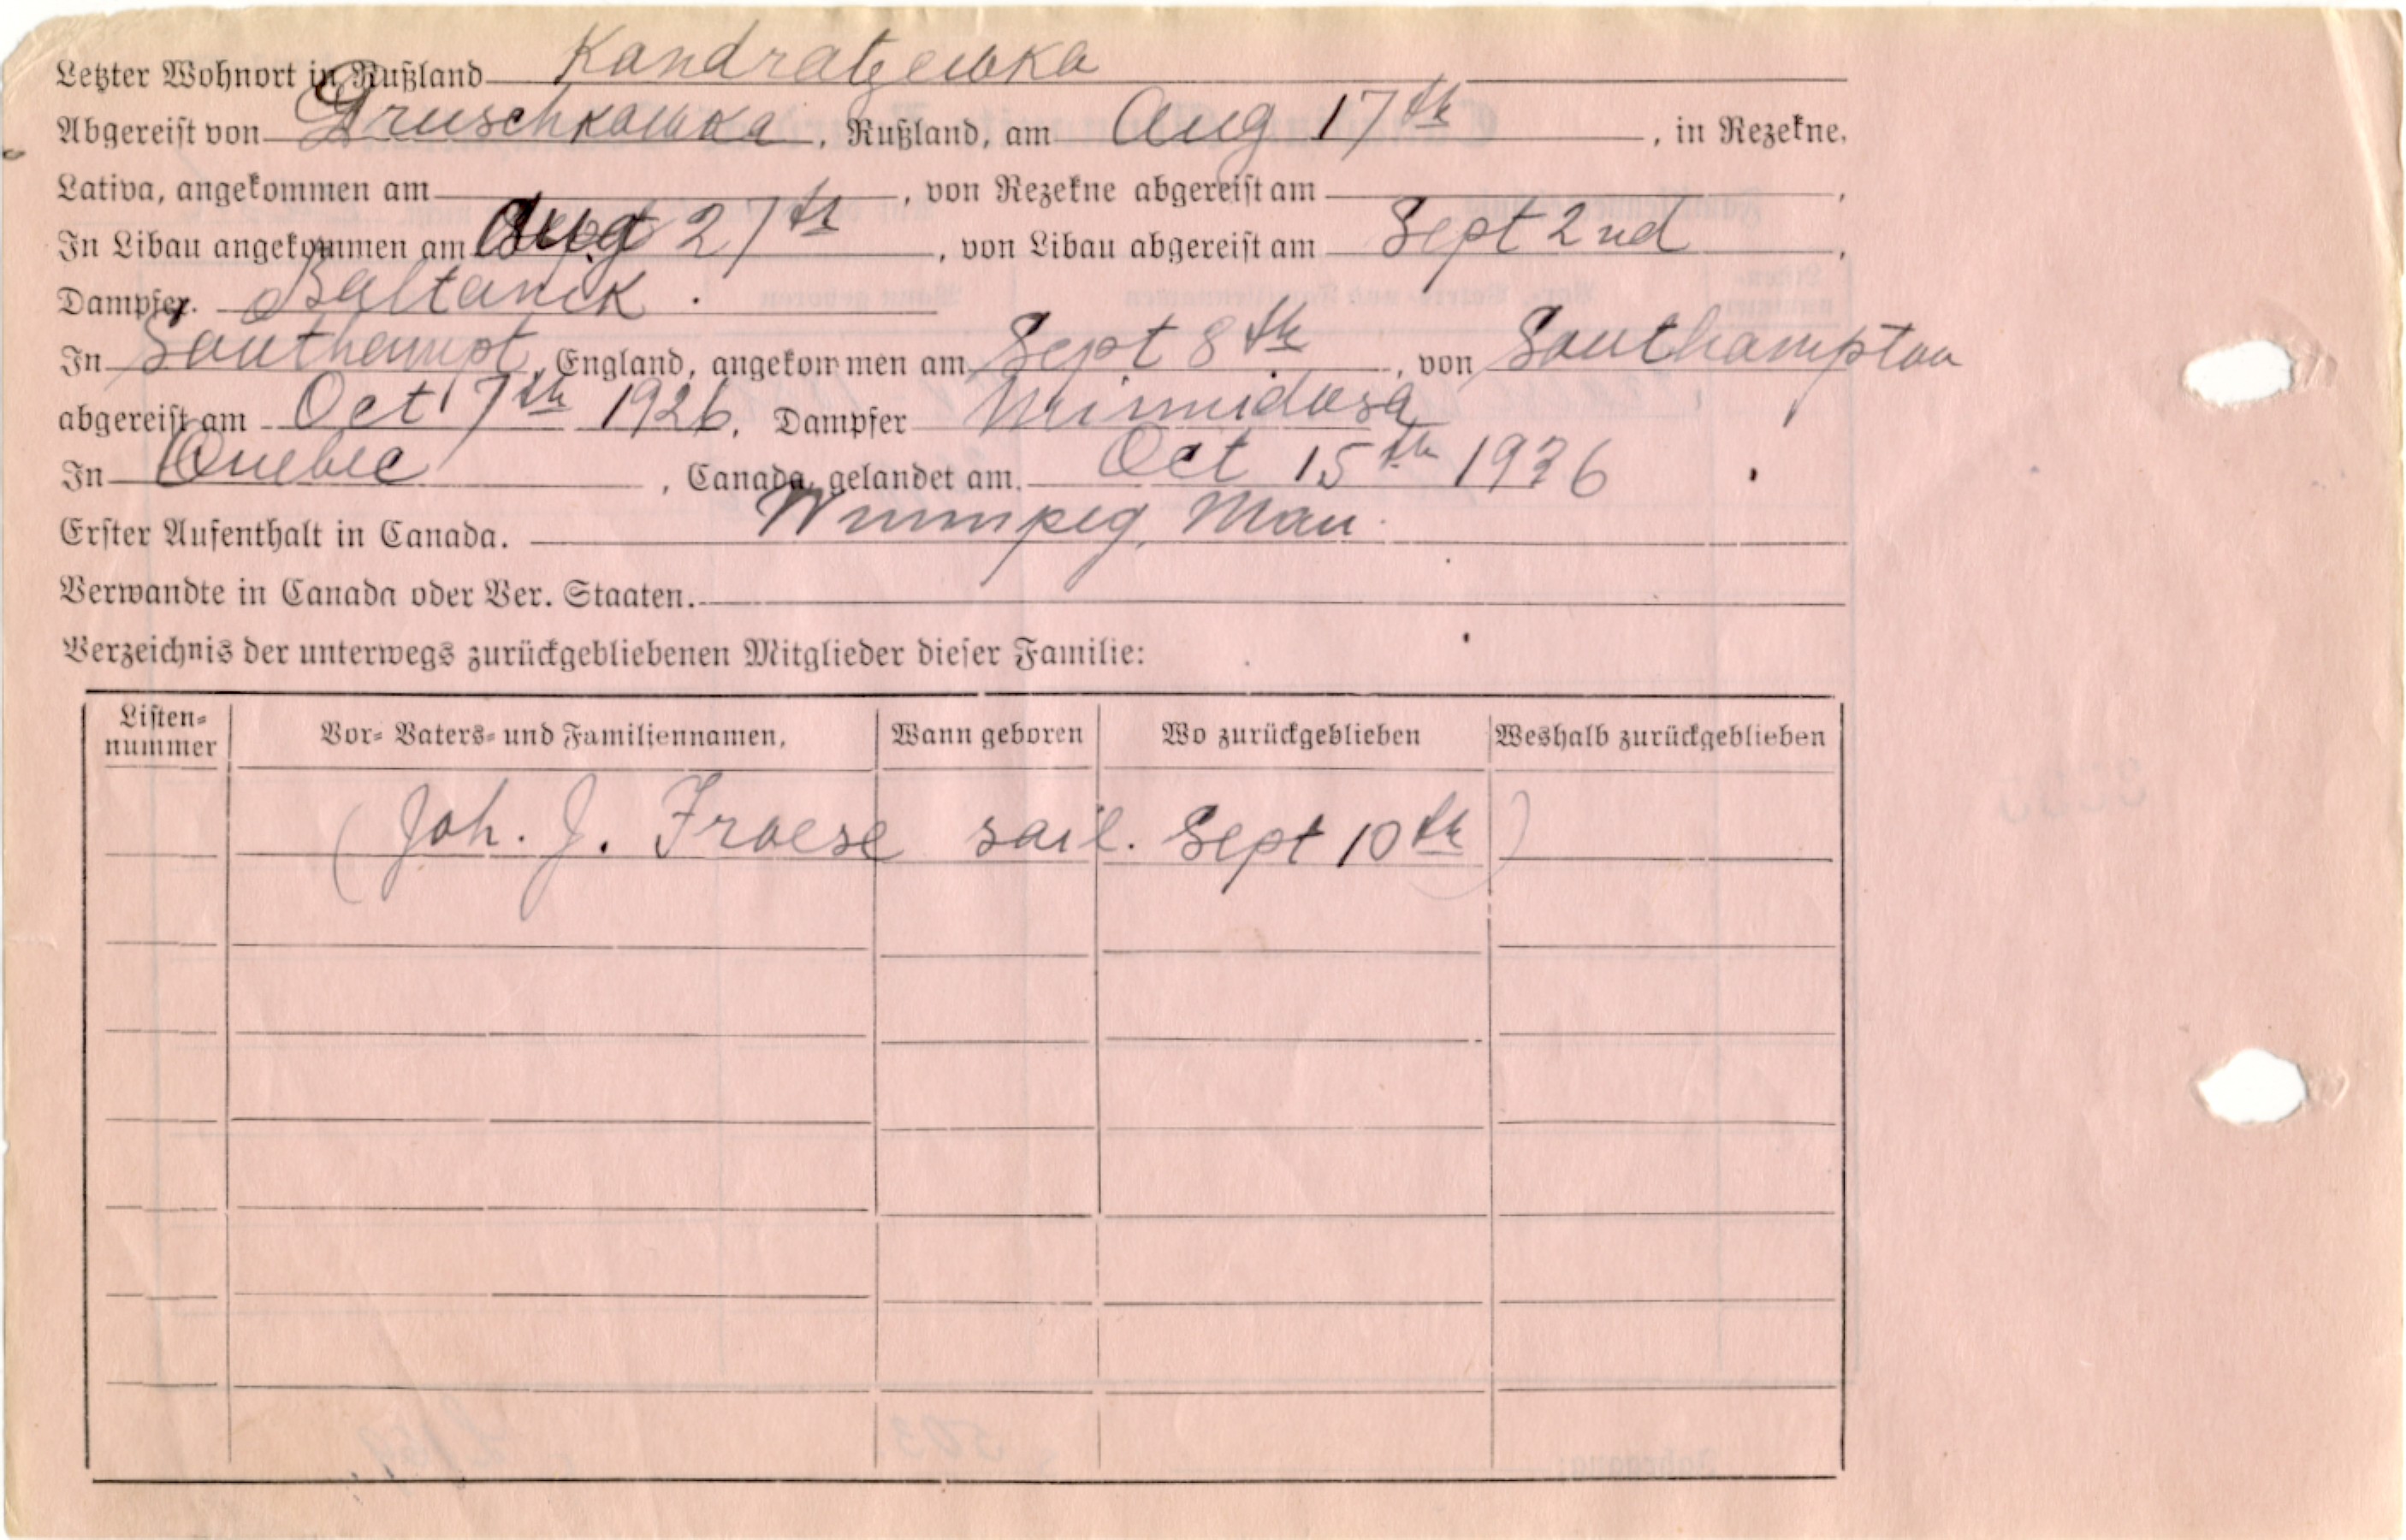 Letzter Wohnort in Rußland Kandratjewka
Abgereist von Druschkowka, Rußland, am Aug 17th, in Rezekne,
Lativa, angekommen am , von Rezekne abgereist am ,
In Libau angekommen am Aug 27th, von Libau abgereist am Sept 2nd,
Dampfer. Baltanik.
In Southampt, England, angekommen am Sept 8th, von Southampton
abgereist am Oct 7th 1926. Dampfer Minnidosa
In Quebec, Canada, gelandet am. Oct 15th 1926
Erster Aufenthalt in Canada. Winnipeg, Man.
Verwandte in Canada oder Ver. Staaten.
Verzeichnis der unterwegs zurückgebliebenen Mitglieder dieser Familie:
Listen-nummer Vor- Vaters- und Familiennamen, Wann geboren Wo zurückgeblieben Weshalb zurückgeblieben
(Joh. J. Froese sail. Sept 10th)